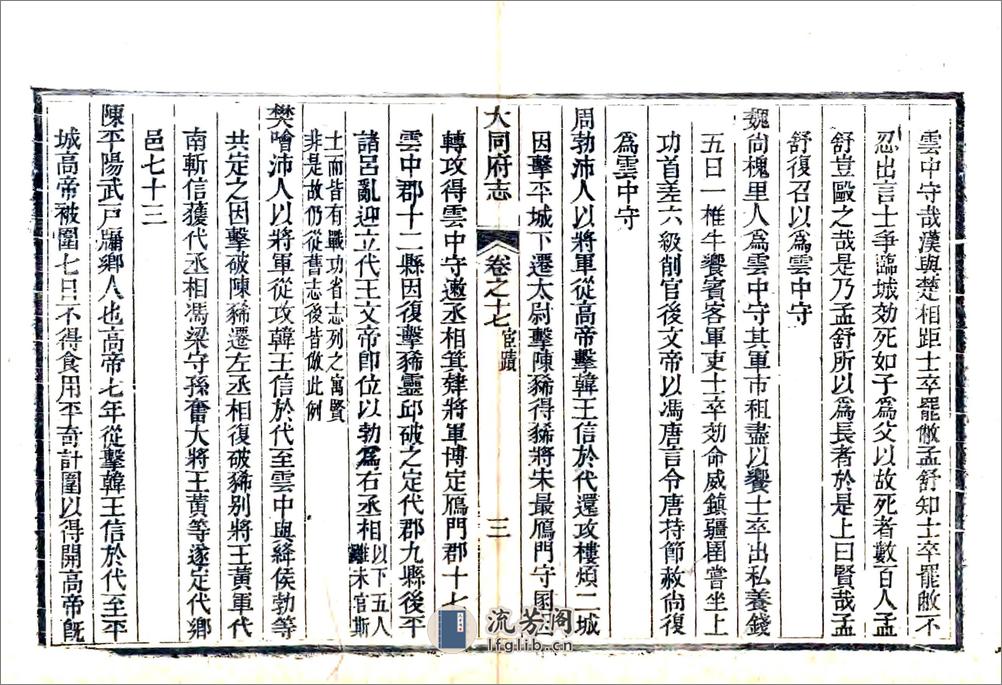 雲中守哉漢與楚相距士卒罷敝孟舒知士卒罷敝不
忍出言士爭臨城効死如子為父以故死者數百人孟
舒豈敺之哉是乃孟舒所以為長者於是上曰賢哉孟
舒復召以為雲中守
魏尚槐里人為雲中守其軍市租盡以饗士卒出私養錢
五日一椎牛饗賓客軍吏士卒効命威鎮疆圉嘗坐上
功首差六級削官後文帝以馮唐言令唐持節赦尚復
為雲中守
周勃沛人以將軍從高帝擊韓王信於代還攻樓煩二城
因擊平城下遷太尉擊陳豨得豨將宋最鴈門守圂因
大同府志
卷之十七
宦蹟
三
轉攻得雲中守遬丞相箕肄將軍博定鴈門郡十七
雲中郡十二縣因復擊豨靈邱破之定代郡九縣後平
諸呂亂迎立代王文帝卽位以勃為右丞相
以下五人
雖未官斯
土而皆有戰功省志列之寓賢
非是故仍從舊志後皆倣此例
樊噲沛人以將軍從攻韓王信於代至雲中與絳侯勃等
共定之因擊破陳豨遷左丞相復破豨别將王黃軍代
南斬信獲代丞相馮梁守孫奮大將王黃等遂定代鄉
邑七十三
陳平陽武戸牖鄉人也高帝七年從擊韓王信於代至平
城高帝被圍七日不得食用平奇計圍以得開高帝旣
流芳閣
lfglib.cn